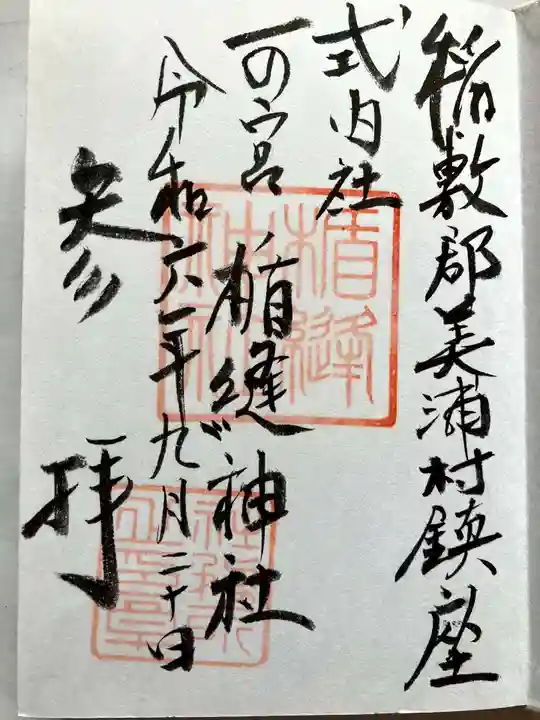 稲敷郡美浦村鎮座
式内社
一の宮 楯縫神社
令和六年九月二十日
参拝
楯縫
神社